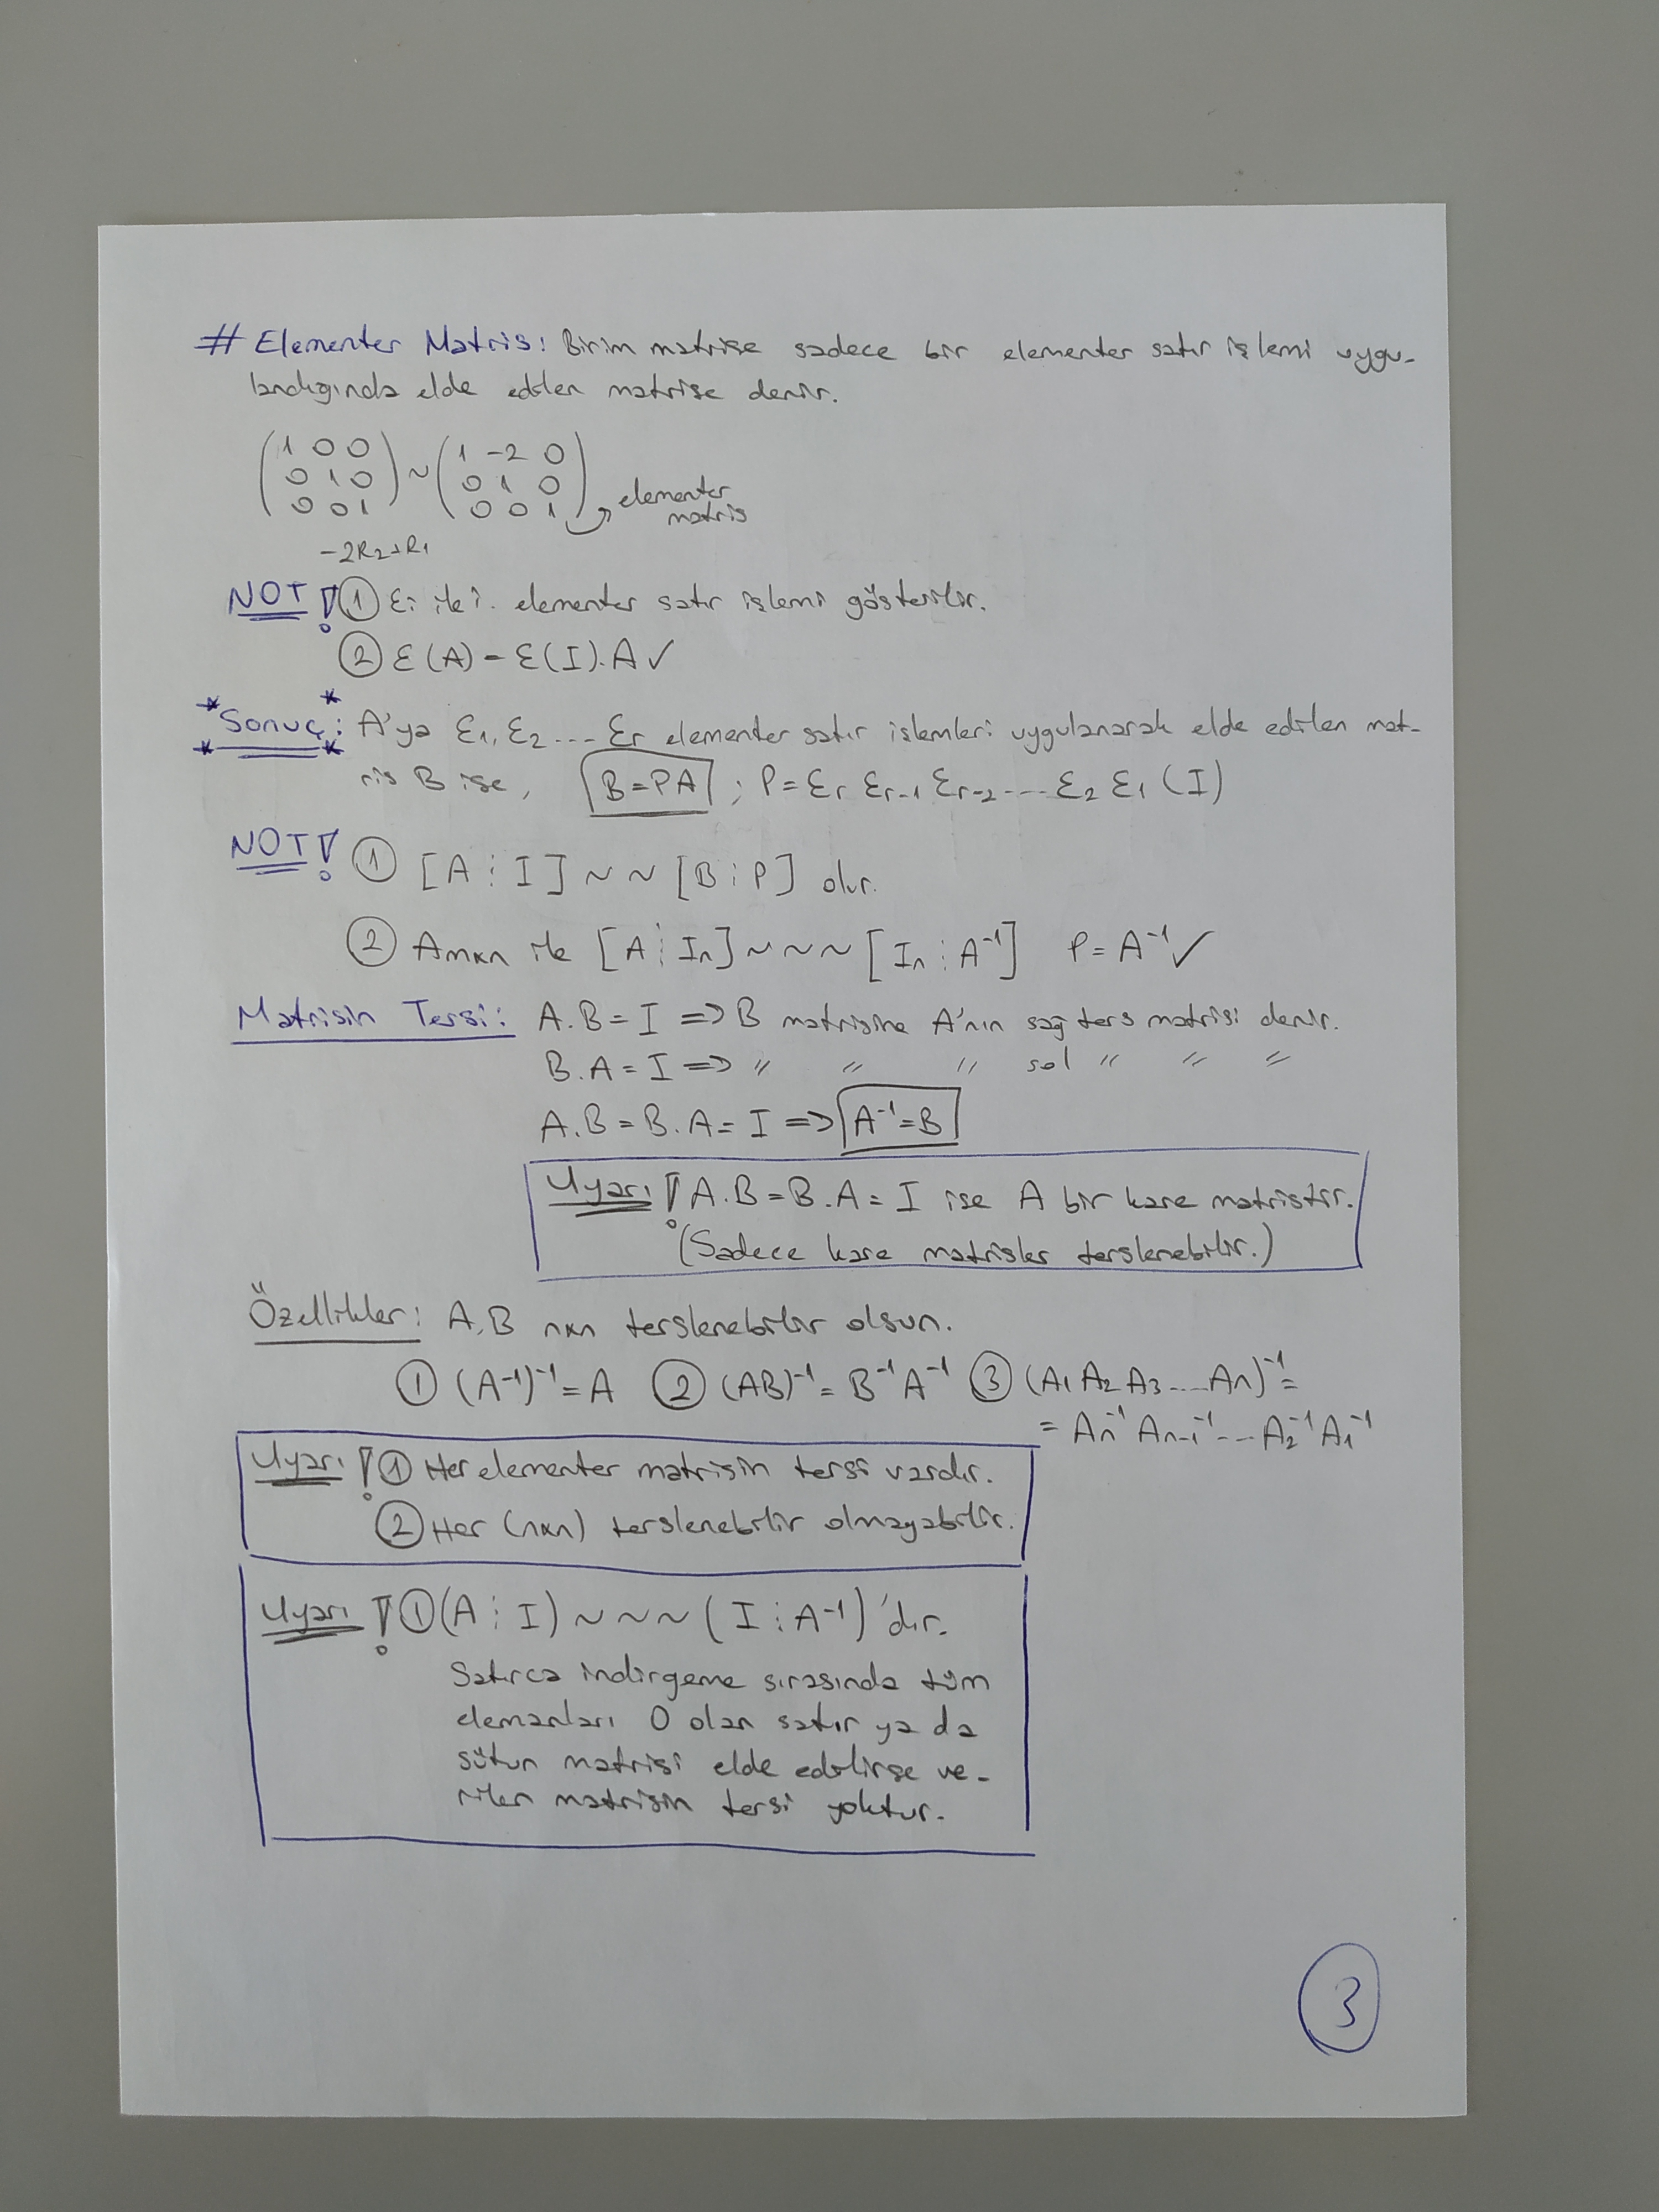 # Elementer Matris: Birim matrise sadece bir elementer satır işlemi uygu-
landığında elde edilen matrise denir.
(1 0 0
0 1 0
0 0 1) ~ (1 -2 0
0 1 0
0 0 1) → elementer matris
-2R2+R1
NOT! ① Ɛi ile i. elementer satır işlemi gösterilir.
② Ɛ(A) = Ɛ(I).A ✓
*Sonuç*: A'ya Ɛ1, Ɛ2 .... Ɛr elementer satır işlemleri uygulanarak elde edilen mat-
ris B ise, B=PA ; P = Ɛr Ɛr-1 Ɛr-2 ---- Ɛ2 Ɛ1 (I)
NOT! ① [A ⋮ I] ~ ~ [B ⋮ P] olur.
② Anxn ile [A ⋮ In] ~ ~ ~ [In ⋮ A⁻¹] P = A⁻¹ ✓
Matrisin Tersi: A.B = I => B matrisine A'nın sağ ters matrisi denir.
B.A = I => " " " sol " " "
A.B = B.A = I => A⁻¹=B
Uyarı! A.B = B.A = I ise A bir kare matristir.
(Sadece kare matrisler terslenebilir.)
Özellikler: A,B nxn terslenebilir olsun.
① (A⁻¹)⁻¹ = A ② (AB)⁻¹ = B⁻¹A⁻¹ ③ (A1 A2 A3 .... An)⁻¹ =
= An⁻¹ An-1⁻¹ --- A2⁻¹ A1⁻¹
Uyarı! ① Her elementer matrisin tersi vardır.
② Her (nxn) terslenebilir olmayabilir.
Uyarı! ① (A ⋮ I) ~ ~ ~ (I ⋮ A⁻¹)'dır.
Satırca indirgeme sırasında tüm
elemanları 0 olan satır ya da
sütun matrisi elde edilirse ve-
rilen matrisin tersi yoktur.
3